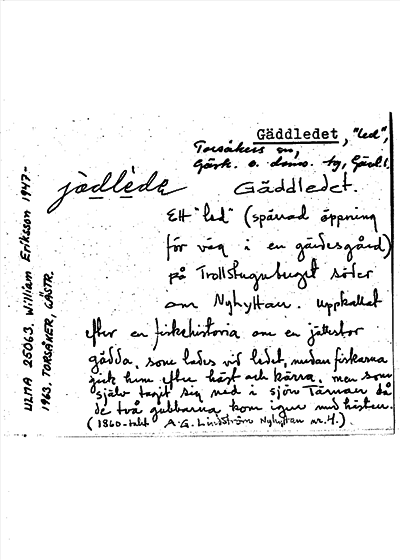 Gäddledet, "led",
Torsåkers sn,
Gästr. ö. doms. tg, Gävl. l.
jòdlède Gäddledet.
Ett "led" (spärrad öppning
för väg i en gärdesgård)
på Trollstuguberget söder
om Nyhyttan. uppkallat
efter en fiskehistoria om en jättestor
gädda, som lades vid ledet, medan fiskarna
gick hem efter häst och kärra, men som
själv tagit sig ned i sjön Tärnan då
de två gubbarna kom igen med hästen.
(1860-talet A.G. Lindström Nyhyttan nr. 4.)
ULMA 25063. William Eriksson 1947-
1963. TORSÅKER, GÄSTR.